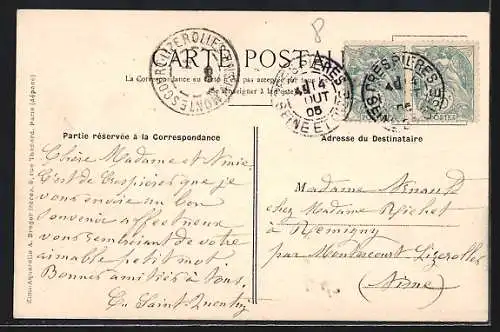 8
CARTE POSTALE
La Correspondance au recto n'est pas acceptée par tous
se renseigner à la Poste
MONTESCOURT-LIZEROLLES
CRESPIERES
14
AOUT
05
SEINE ET OISE
CRESPIERES
14
05
POSTES
Partie réservée à la Correspondance
Adresse du Destinataire
Chère Madame et Amie
C'est de Crespières que je
vous envoie un bon
souvenir affectueux
vous remerciant de votre
aimable petit mot
Bonnes amitiés à tous.
Saint-Quentin
Madame Arnaud
chez Madame Richet
à Remigny
par Montescourt Lizerolles
(Aisne)
A. Breger frères, 9, rue Thénard, Paris (déposé)